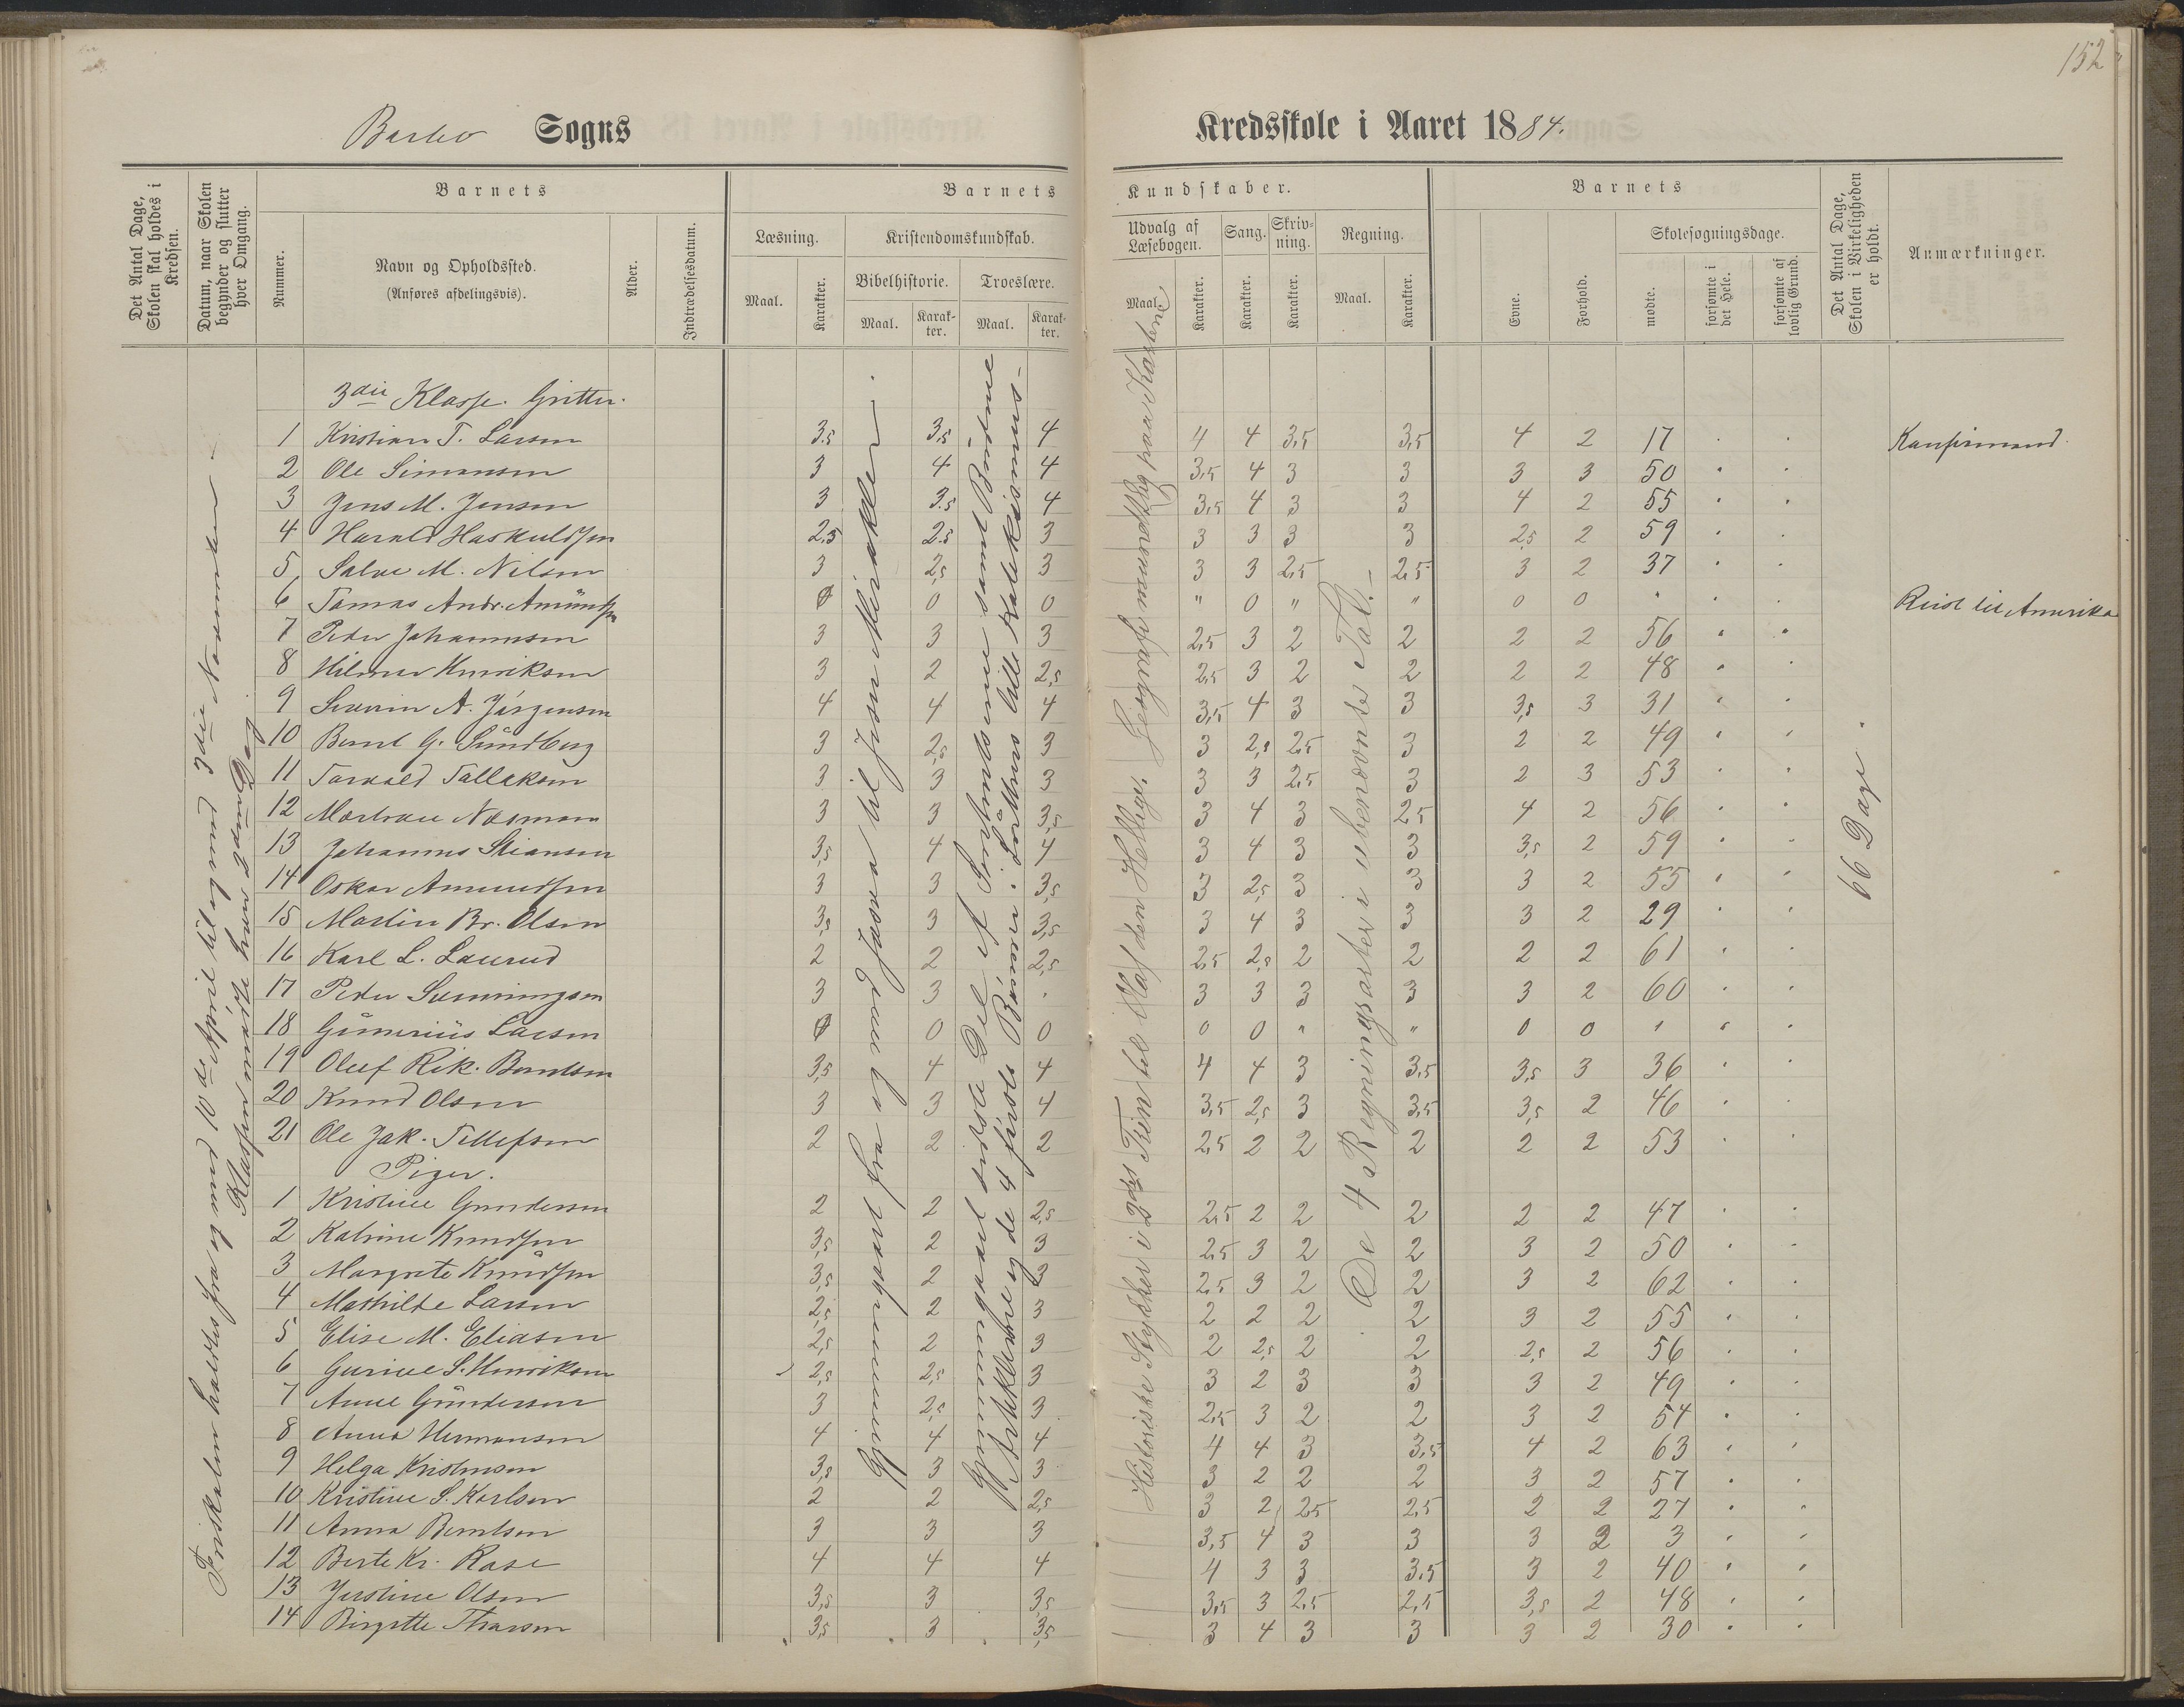 152
Barbo Sogns Kredsskole i Aaret 1884.
Det Antal Dage, Skolen skal holdes i Kredsen.
Datum, naar Skolen begynder og slutter hver Omgang.
Barnets
Nummer.
Navn og Opholdssted.
(Anføres afdelingsvis).
Alder.
Indtrædelsesdatum.
Barnets Kundskaber.
Læsning.
Maal. Karakter.
Kristendomskundskab.
Bibelhistorie. Troeslære.
Maal. Karakter. Maal. Karakter.
Udvalg af Læsebogen. Sang. Skrivning. Regning.
Maal. Karakter. Karakter. Karakter. Maal. Karakter.
Barnets
Evne. Forhold.
Skolesøgningsdage.
mødte. forsømte i det Hele. forsømte af lovlig Grund.
Det Antal Dage, Skolen i Virkeligheden er holdt.
Anmærkninger.
holdtes fra og med 10de April til og med 3die November
Klassen mødte hver 2den Dag
Gjennemgaaet fra og med Josva til Jesu Mirakler.
Gjennemgaaet sidste Del af Sintenksomme samt Bødrene
Artiklerne og de 4 første Bønner i Luthers lille Katekismus.
Historiske Stykker i 2det Trin til Olaf den Hellige. Geografi mundtlig paa Kartene
De 4 Regningsarter i ubenævnte Tal.
66 Dage.
3die Klasse. Gutter.
1 Kristian T. Larsen 3.5 3,5 4 4 4 3,5 3,5 4 2 17 Konfirmand.
2 Ole Simonsen 3 4 4 3,5 4 3 3 3 3 50
3 Jens M. Jensen 3 3.5 4 3,5 4 3 3 4 2 55
4 Harald Haskuldsen 2.5 2.5 3 3 3 3 3 2,5 2 59
5 Salve M. Nilsen 3 2,5 3 3 3 2,5 2,5 3 2 37
6 Tomas Andr. Amundsen 0 0 0 " 0 " " 0 0 " Reist til Amerika
7 Peder Johannesen 3 3 3 2,5 3 2 2 2 2 56
8 Hilmar Henriksen 3 2 2,5 2,5 3 2 2 2 2 48
9 Severin A. Jørgensen 4 4 4 3,5 4 3 3 3,5 3 31
10 Bernt G. Sundberg 3 2,5 3 3 2,5 2,5 3 2 2 49
11 Torvald Tallaksen 3 3 3 3 3 2,5 3 2 3 53
12 3 3 3,5 3 4 3 2,5 4 2 56
13 Johannes Stiansen 3,5 4 4 3 4 3 3 3,5 2 59
14 Oskar Amundsen 3 3 3,5 3 2,5 3 3 3 2 55
15 Martin Br. Olsen 3,5 3 3,5 3 4 3 3 3 2 29
16 Karl L. Laurud 2 2 2,5 2,5 2,5 2 2 2 2 61
17 Peder Svenningsen 3 3 . 3 3 3 3 3 2 60
18 Gunerius Larsen 0 0 0 0 0 " " 0 0 "
19 Oluf Rik. Berntsen 3,5 4 4 4 4 3 3,5 3,5 3 36
20 Knud Olsen 3 3 4 3,5 2,5 3 3,5 3,5 2 46
21 Ole Jak. Tellefsen 2 2 2 2,5 2 2 2 2 2 53
Piger.
1 Kristine Gundersen 2 2 2,5 2,5 2 2 2 2 2 47
2 Katrine Knudsen 3,5 2 3 2,5 3 2 2 3 2 50
3 Margrete Knudsen 3,5 2 3 2,5 3 2 2 3 2 62
4 Mathilde Larsen 2,5 2 3 2 2 2 2 3 2 55
5 Elise M. Eliasen 2,5 2 3 2 2,5 2 2 2,5 2 56
6 Gurine S. Henriksen 2,5 2,5 3 3 2 3 3 3 2 49
7 Anne Gundersen 3 2,5 3 2,5 3 2 2 3 2 54
8 Anna Hermansen 4 4 4 4 4 3 3,5 4 2 63
9 Helga Kristensen 3,5 3 3 3 2 2 2 3 2 57
10 Kristine S. Karlsen 2 2 2,5 3 2 2,5 2,5 2 2 27
11 Anna Berntsen 3 3 3 3,5 4 3 3 3 2 3
12 Berte Kr. Rase 4 4 4 4 3 3 3,5 3 2 40
13 Justine Olsen 3,5 3 3,5 3,5 3 2,5 2,5 3,5 2 48
14 Birgitte 3,5 3 3,5 3 4 3 3 3 2 30